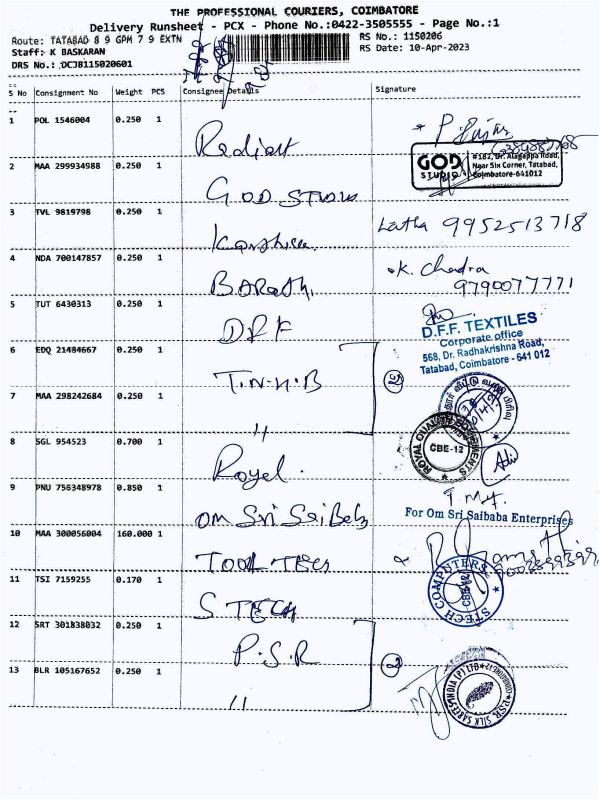 THE PROFESSIONAL COURIERS, COIMBATORE
Delivery Runsheet - PCX - Phone No.:0422-3505555 - Page No.:1
Route: TATABAD 8 9 GPM 7 9 EXTN RS No.: 1150206
Staff: K BASKARAN RS Date: 10-Apr-2023
DRS No.: DCJB115020601
S No Consignment No Weight PCS Consignee Details Signature
1 POL 1546004 0.250 1 Radiant
2 MAA 299934988 0.250 1 GOD STUDIO
GOD STUDIO #182, Dr. Alagappa Road,
Near Six Corner, Tatabad,
Coimbatore-641012
3 TVL 9819798 0.250 1 Latha 9952513718
4 NDA 700147857 0.250 1 BARath. K. Chadra
9790077771
5 TUT 6430313 0.250 1 DFF
D.F.F. TEXTILES
Corporate office
568, Dr. Radhakrishna Road,
Tatabad, Coimbatore - 641 012
6 EDQ 21484667 0.250 1 T.N.H.B
7 MAA 298242684 0.250 1 "
8 SGL 954523 0.700 1 Royel.
ROYAL QUALITY CBE-12
9 PNU 756348978 0.850 1 OM Sri Sai Baba
For Om Sri Saibaba Enterprises
10 MAA 300056004 160.000 1
11 TSI 7159255 0.170 1 S TECH
STECH COMPUTERS
12 SRT 301838032 0.250 1 P.S.R 2
13 BLR 105167652 0.250 1 "
P.S.R. SILK SAREES INDIA (P) LTD